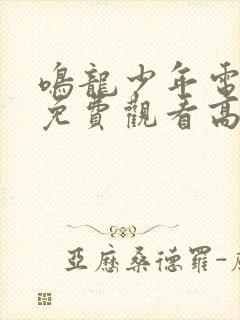 鳴龍少年電
免費觀看高
亞歷桑德羅-